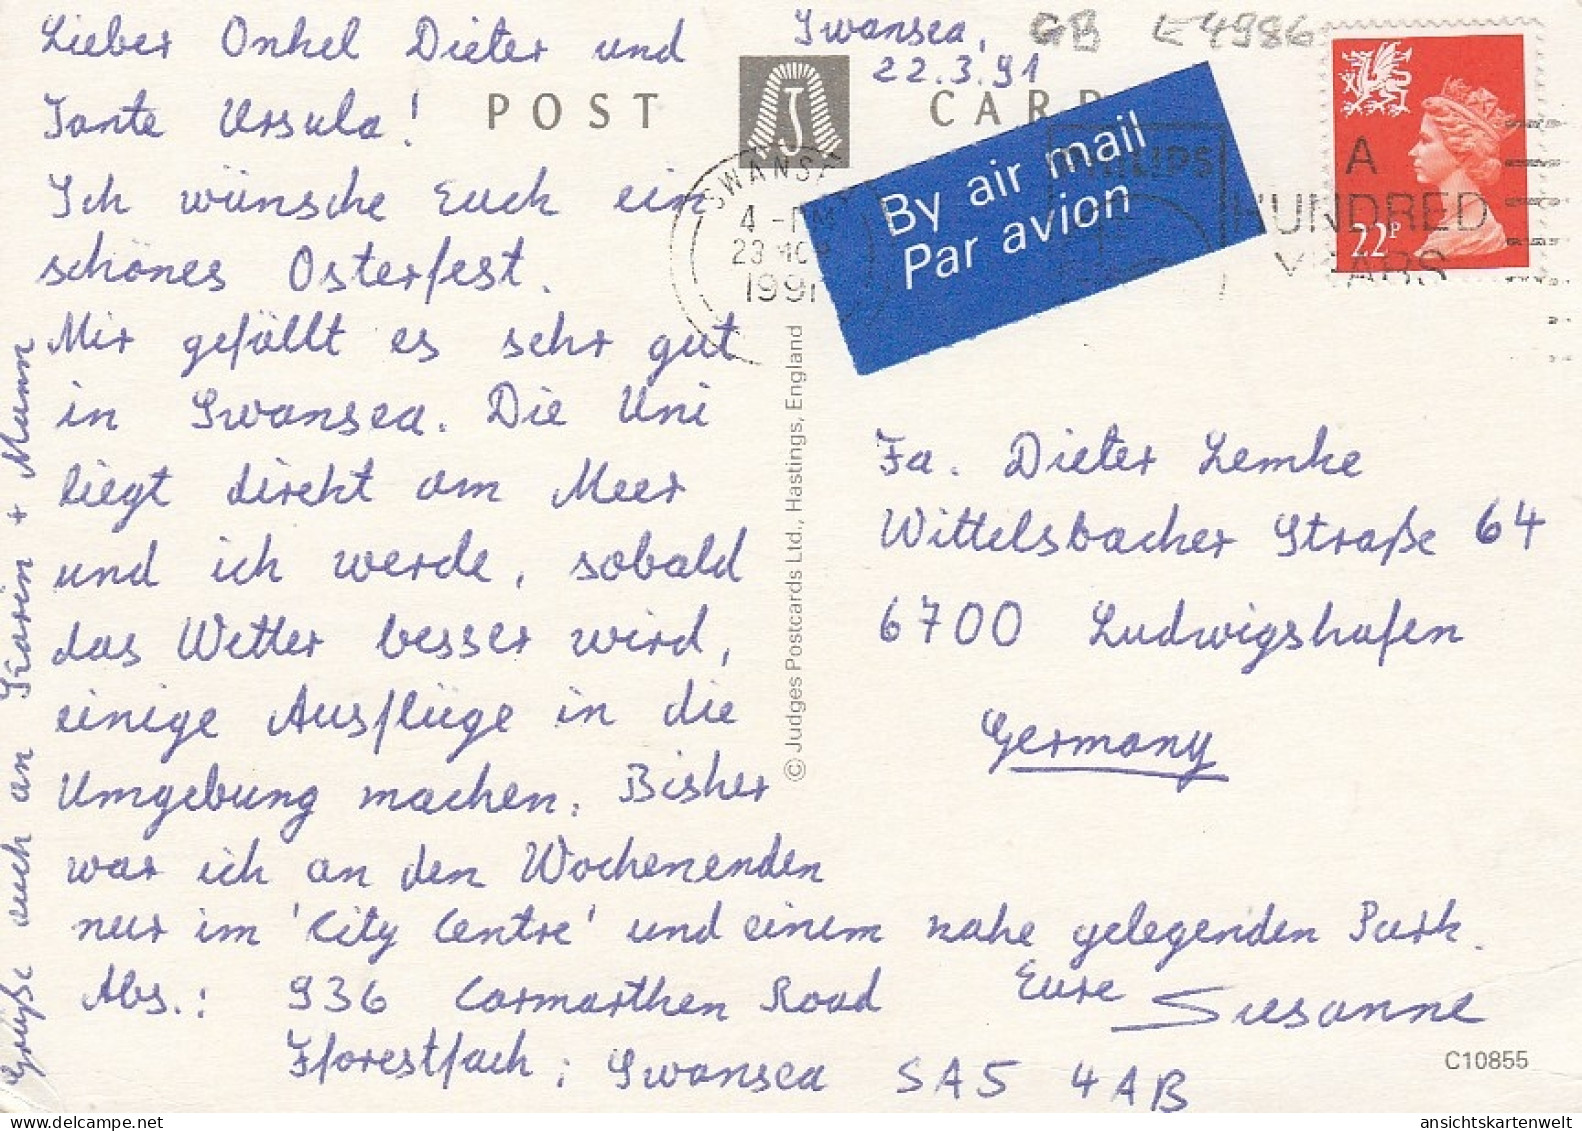 Lieber Onkel Dieter und
Tante Ursula!
Ich wünsche Euch ein
schönes Osterfest.
Mir gefällt es sehr gut
in Swansea. Die Uni
liegt direkt am Meer
und ich werde, sobald
das Wetter besser wird,
einige Ausflüge in die
Umgebung machen. Bisher
war ich an den Wochenenden
nur im 'City Centre' und einem nahe gelegenden Park.
Eure Susanne
Abs.: 936 Carmarthen Road
Fforestfach, Swansea SA5 4AB
Grüße auch an Karin + Mann
Swansea,
22.3.91
GB E4986
POST CARD
By air mail
Par avion
SWANSEA
4 - PM
23 MCH
1991
PHILIPS
A
HUNDRED
YEARS
22P
© Judges Postcards Ltd., Hastings, England
Fa. Dieter Lemke
Wittelsbacher Straße 64
6700 Ludwigshafen
Germany
C10855
ansichtskartenwelt